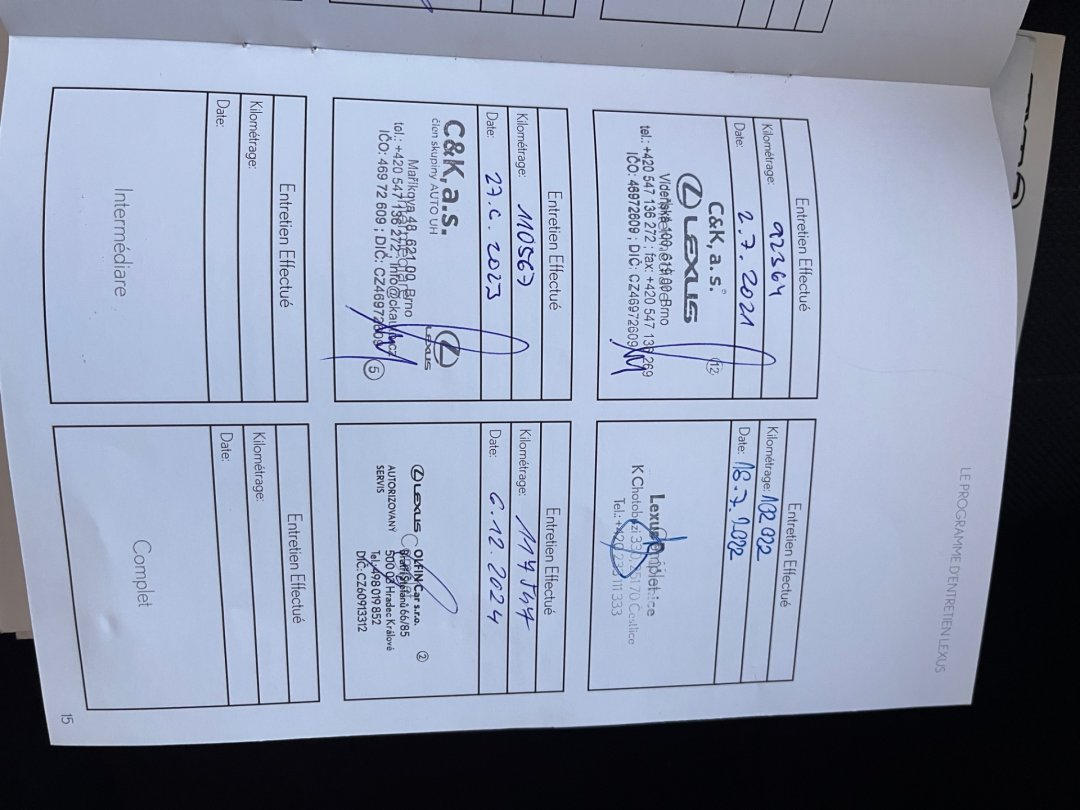 LE PROGRAMME D'ENTRETIEN LEXUS
Entretien Effectué
Kilométrage: 92364
Date: 2.7.2021
C&K, a. s.
LEXUS
Vídeňská 100, 619 00 Brno
tel.: +420 547 136 272 ; fax: +420 547 136 269
IČO: 46972609 ; DIČ: CZ46972609
12
Entretien Effectué
Kilométrage: 102022
Date: 18.7.2022
Lexus
K Chotobuzi 330, 251 70 Čestlice
Entretien Effectué
Kilométrage: 110567
Date: 2023
C&K, a.s.
člen skupiny AUTO UH
LEXUS
Maříkova 48, 621 00 Brno
tol.: +420 547 136 272
IČO: 469 72 609 ; DIČ: CZ46972609
5
Entretien Effectué
Kilométrage:
Date: 6.12.2024
LEXUS OLFIN Car s.r.o.
AUTORIZOVANÝ
SERVIS
500 03 Hradec Králové
Tel.: 498 019 852
DIČ: CZ60913312
2
Entretien Effectué
Kilométrage:
Date:
Intermédiare
Entretien Effectué
Kilométrage:
Date:
Complet
15